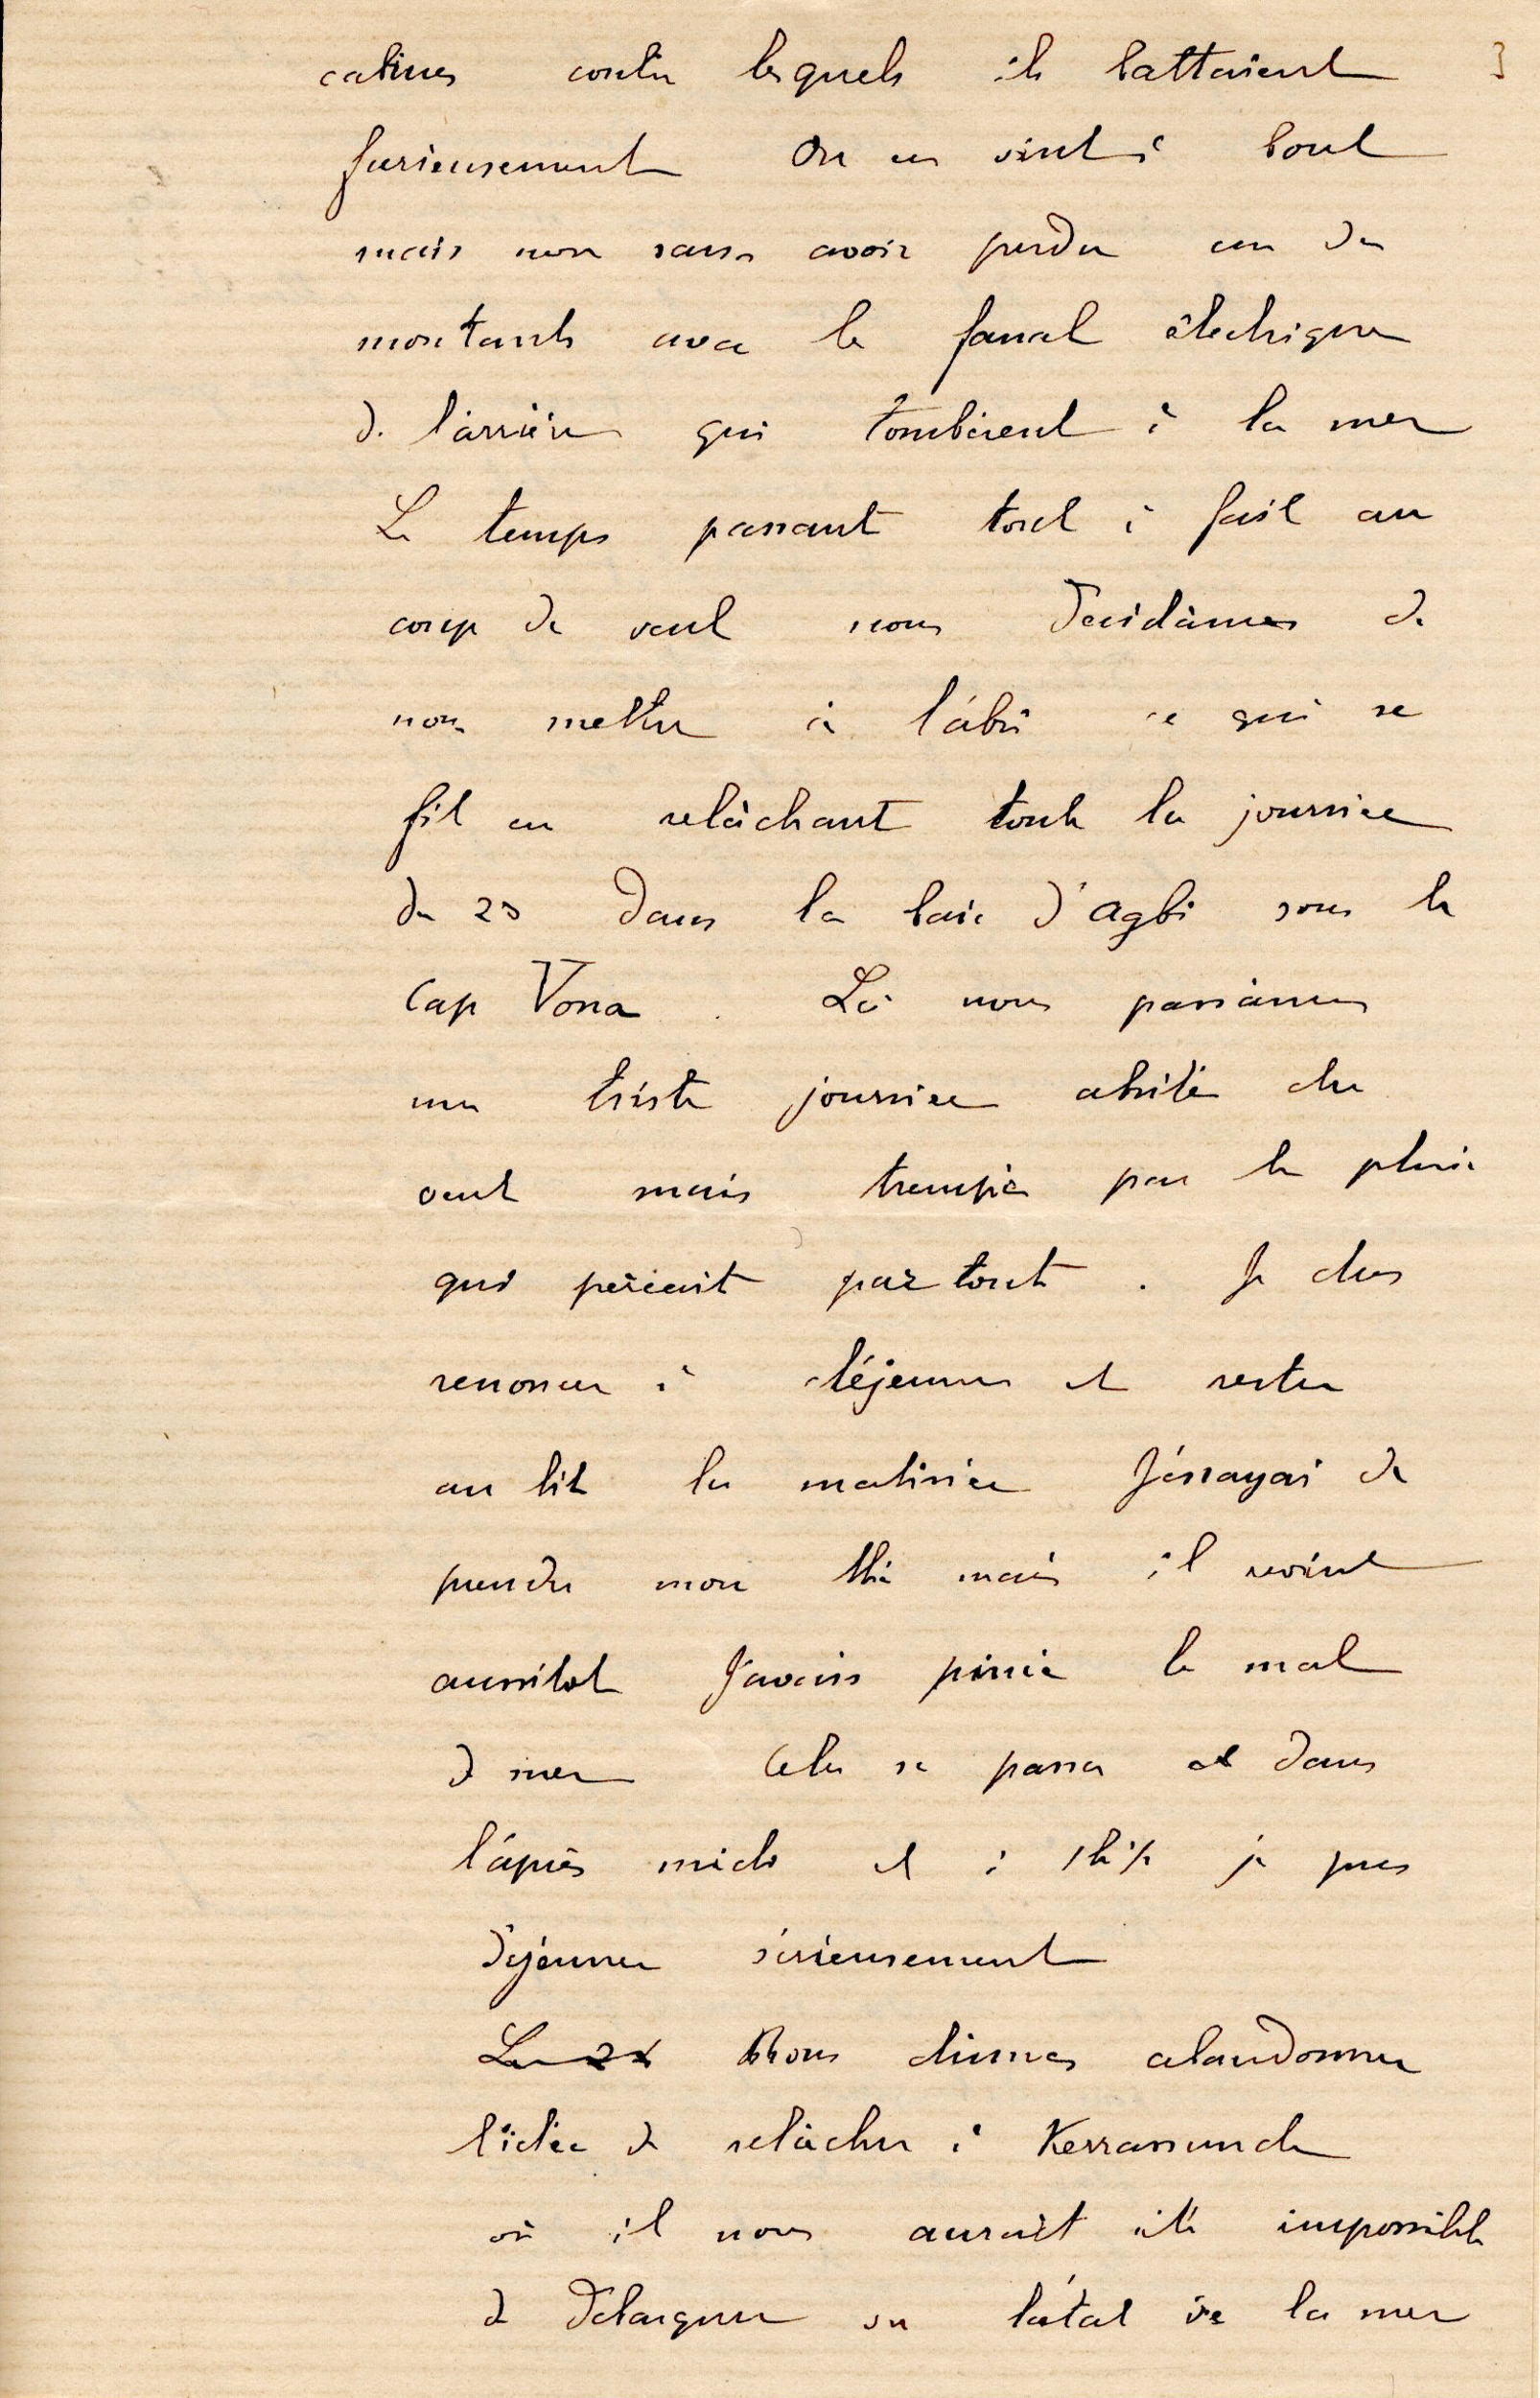 3
cabines contre lesquels ils battaient
furieusement On en vint à bout
mais non sans avoir perdu un des
montants avec le fanal électrique
de l'arrière qui tombèrent à la mer
Le temps passant tout à fait au
coup de vent nous décidâmes de
nous mettre à l'abri ce qui se
fit en relâchant toute la journée
du 23 dans la baie d'Agbi sous le
Cap Vona. Là nous passâmes
une triste journée abrités du
vent mais trempés par la pluie
qui perçait partout. Je dus
renoncer à déjeuner et rester
au lit la matinée J'essayai de
prendre mon thé mais il revint
aussitôt J'avais pincé le mal
de mer Cela se passa dans
l'après midi et à 1h½ je pus
déjeuner sérieusement
Nous dûmes abandonner
l'idée de relâcher à Kerrasunde
où il nous aurait été impossible
de débarquer vu l'état de la mer